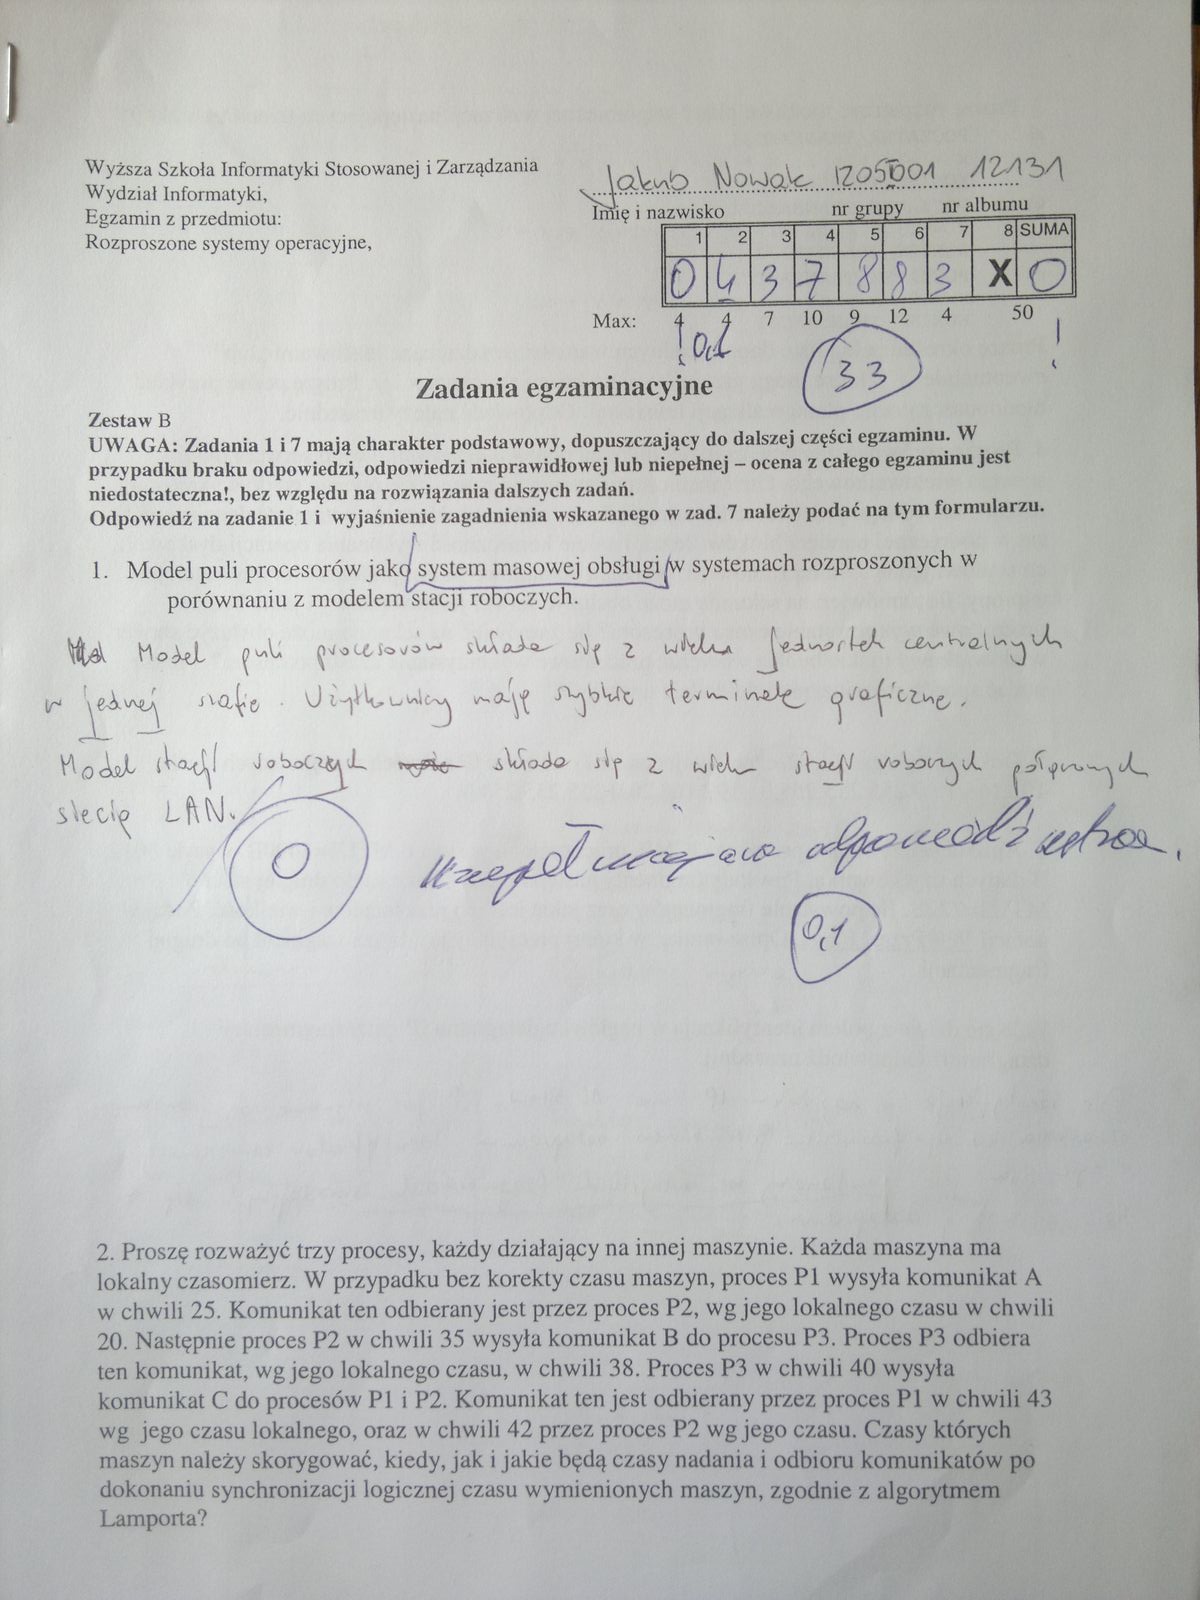 Wyższa Szkoła Informatyki Stosowanej i Zarządzania
Wydział Informatyki,
Egzamin z przedmiotu:
Rozproszone systemy operacyjne,
Jakub Nowak 12131
Imię i nazwisko nr grupy nr albumu
1 2 3 4 5 6 7 8 SUMA
0 4 3 7 8 8 3 X 0
Max: 4 4 7 10 9 12 4 50
! 0,1 !
33
Zadania egzaminacyjne
Zestaw B
UWAGA: Zadania 1 i 7 mają charakter podstawowy, dopuszczający do dalszej części egzaminu. W
przypadku braku odpowiedzi, odpowiedzi nieprawidłowej lub niepełnej – ocena z całego egzaminu jest
niedostateczna!, bez względu na rozwiązania dalszych zadań.
Odpowiedź na zadanie 1 i wyjaśnienie zagadnienia wskazanego w zad. 7 należy podać na tym formularzu.
1. Model puli procesorów jako system masowej obsługi w systemach rozproszonych w
porównaniu z modelem stacji roboczych.
Model puli procesorów składa się z wielu jednostek centralnych
w jednej szafie. Użytkownicy mają szybkie terminale graficzne.
Model stacji roboczych składa się z wielu stacji roboczych połączonych
siecią LAN.
0
odpowiedź
0,1
2. Proszę rozważyć trzy procesy, każdy działający na innej maszynie. Każda maszyna ma
lokalny czasomierz. W przypadku bez korekty czasu maszyn, proces P1 wysyła komunikat A
w chwili 25. Komunikat ten odbierany jest przez proces P2, wg jego lokalnego czasu w chwili
20. Następnie proces P2 w chwili 35 wysyła komunikat B do procesu P3. Proces P3 odbiera
ten komunikat, wg jego lokalnego czasu, w chwili 38. Proces P3 w chwili 40 wysyła
komunikat C do procesów P1 i P2. Komunikat ten jest odbierany przez proces P1 w chwili 43
wg jego czasu lokalnego, oraz w chwili 42 przez proces P2 wg jego czasu. Czasy których
maszyn należy skorygować, kiedy, jak i jakie będą czasy nadania i odbioru komunikatów po
dokonaniu synchronizacji logicznej czasu wymienionych maszyn, zgodnie z algorytmem
Lamporta?